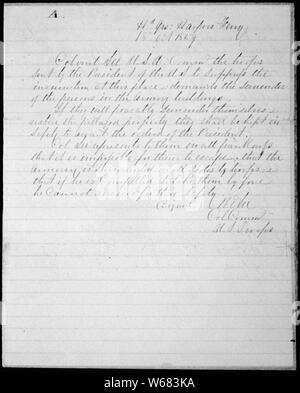 A
Hd Qrs: Harpers Ferry
18 Oct 1859
Colonel Lee U.S.A. Com'g the troops
sent by the President of the U.S. to suppress the
insurrection at this place, demands the surrender
of the persons in the armory buildings.
If they will peaceably surrender themselves &
restore the pillaged property, they shall be kept in
safety to await the orders of the President.
Col Lee represents to them in all frankness
that it is impossible for them to escape, that the
armory is surrounded on all sides by troops &
that if he is compelled to take them by force
he cannot answer for their safety
(Signed) R E Lee
Col Comm
U.S. Troops
alamy
Image ID: W683KA
www.alamy.com